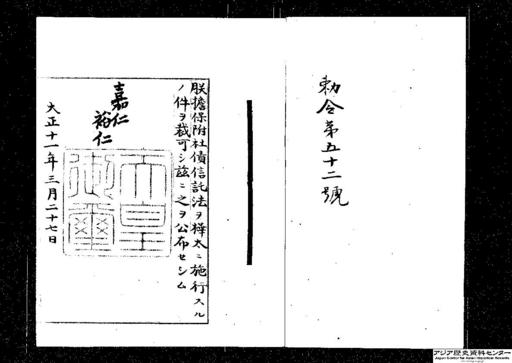 勅令第五十二號
朕擔保附社債信託法ヲ樺太ニ施行スル
ノ件ヲ裁可シ茲ニ之ヲ公布セシム
嘉仁
裕仁
天皇
御璽
大正十一年三月二十七日
アジア歴史資料センター
Japan Center for Asian Historical Records